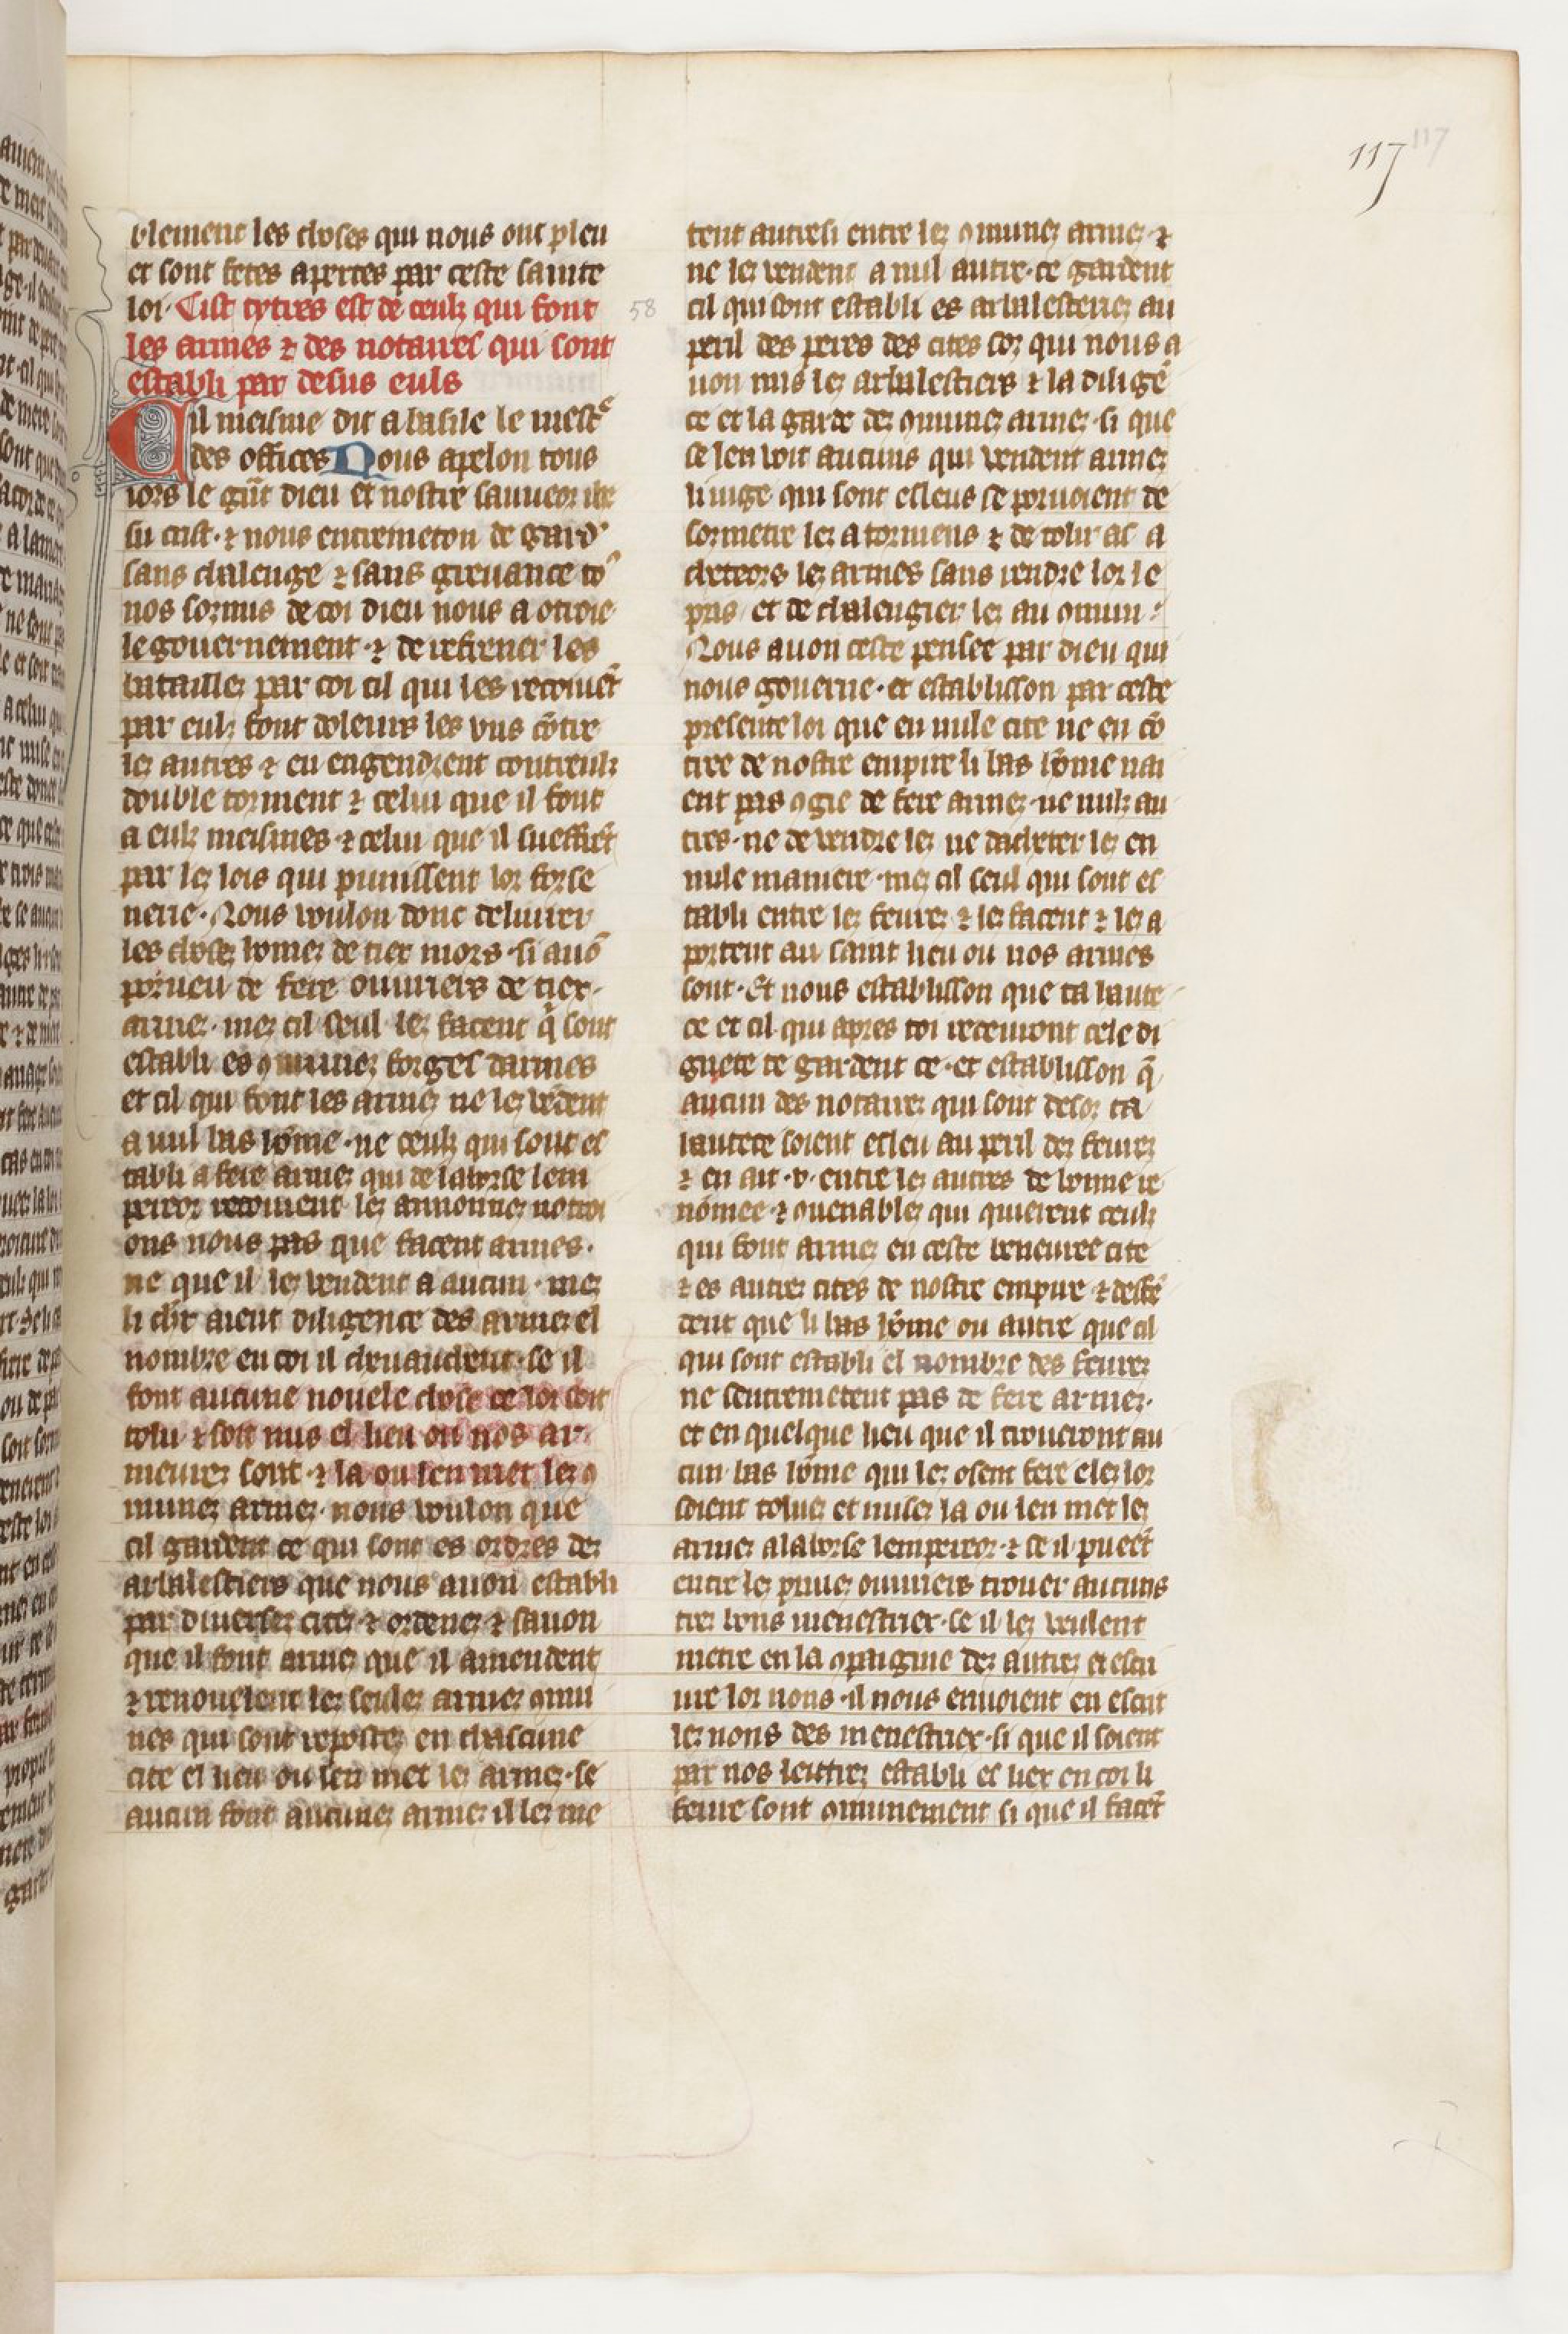 117 117
blement les choses qui nous ont pleu
et sont fetes apertes par ceste sainte
loi. Cist tytres est de ceulz qui font
les armes ⁊ des notaires qui sont
establi par desus euls
Cil meisme dit a basile le mestre
des offices Nous apelon tous
iors le grant dieu et nostre sauueor ihe
su crist. ⁊ nous entremeton de garder
sans chalenge ⁊ sans greuance toz
nos sozmis de coi dieu nous a otroie
le gouernement ⁊ de refrener les
batailles par coi cil qui les recoiuent
par eulz font doleurs les vns contre
lez autres ⁊ en engendrent contreulz
double torment ⁊ celui que il font
a eulz meismes ⁊ celui que il sueffrent
par lez lois qui punissent lor forse
nerie. Nous voulon donc deliurer
les choses homez de tiex mors. si auon
porueu de fere ouuriers de tiex
armez. mez cil seul lez facent qui sont
establi es ꝯmunez forges darmes
et cil qui font les armez ne lez vendent
a nul bas home. ne ceulz qui sont es
tabli a fere armez qui de laborse lem
pereor recoiuent lez annonnez notroi
ons nous pas que facent armes.
ne que il lez vendent a aucun. mez
li chr aient diligence des armez el
nombre en coi il cheuauchent. se il
font aucune nouele chose ce lor soit
tolu ⁊ soit mis el lieu ou nos ar
meurez sont. ⁊ la ou len met lez ꝯ
munez armez. nous voulon que
cil gardent ce qui sont es ordres dez
arbalestiers que nous auon establi
par diuersez citez ⁊ ordenez ⁊ sauon
que il font armez que il amendent
⁊ renouelent lez seulez armez ꝯmu
nes qui sont repostez en chascune
cite el lieu ou len met lez armez. se
aucun font aucunez armez il lez me
58
tent autresi entre lez ꝯmunez armez ⁊
ne lez vendent a nul autre. ce gardent
cil qui sont establi es arbalesteriez au
peril des peres des cites soz qui nous a
uon mis lez arbalestiers ⁊ la diligen
ce et la garde dez ꝯmunez armez. si que
se len voit aucuns qui vendent armez
li iuge qui sont esleus se poruoient de
sozmetre lez a tormens ⁊ de tolir as a
cheteors lez armes sans rendre lor le
pris et de chalengier lez au ꝯmun.
Nous auon ceste pensee par dieu qui
nous gouerne. et establisson par ceste
presente loi que en nule cite ne en con
tree de nostre empire li bas home nai
ent pas ꝯgie de fere armez. ne nulz au
tres. ne de vendre lez ne dacheter lez en
nule maniere. mez cil seul qui sont es
tabli entre lez feurez ⁊ lez facent ⁊ lez a
portent au saint lieu ou nos armes
sont. Et nous establisson que ta haute
ce et cil qui apres toi receuront cele di
gnete te gardent ce. et establisson que
aucun des notairez qui sont desoz ta
hautece soient esleu au peril dez feurez
⁊ en ait .v. entre lez autres de bonne re
nomee ⁊ ꝯuenablez qui quierent ceulz
qui font armez en ceste beneuree cite
⁊ es autrez cites de nostre empire ⁊ desfen
dent que li bas home ou autre que cil
qui sont establi el nombre des feurez
ne sentremetent pas de fere armez.
et en quelque lieu que il troueront au
cun bas home qui lez osent fere elez lor
soient toluez et misez la ou len met lez
armez a laborse lempereor. ⁊ se il pueent
entre lez priuez ouuriers trouer aucuns
trez bons menestriex. se il lez veulent
metre en la ꝯpaignie dez autrez et escri
ure lor nons. il nous enuoient en escrit
lez nons des menestriex. si que il soient
par nos lettrez establi es liex en coi li
feure sont ꝯmunement si que il facent